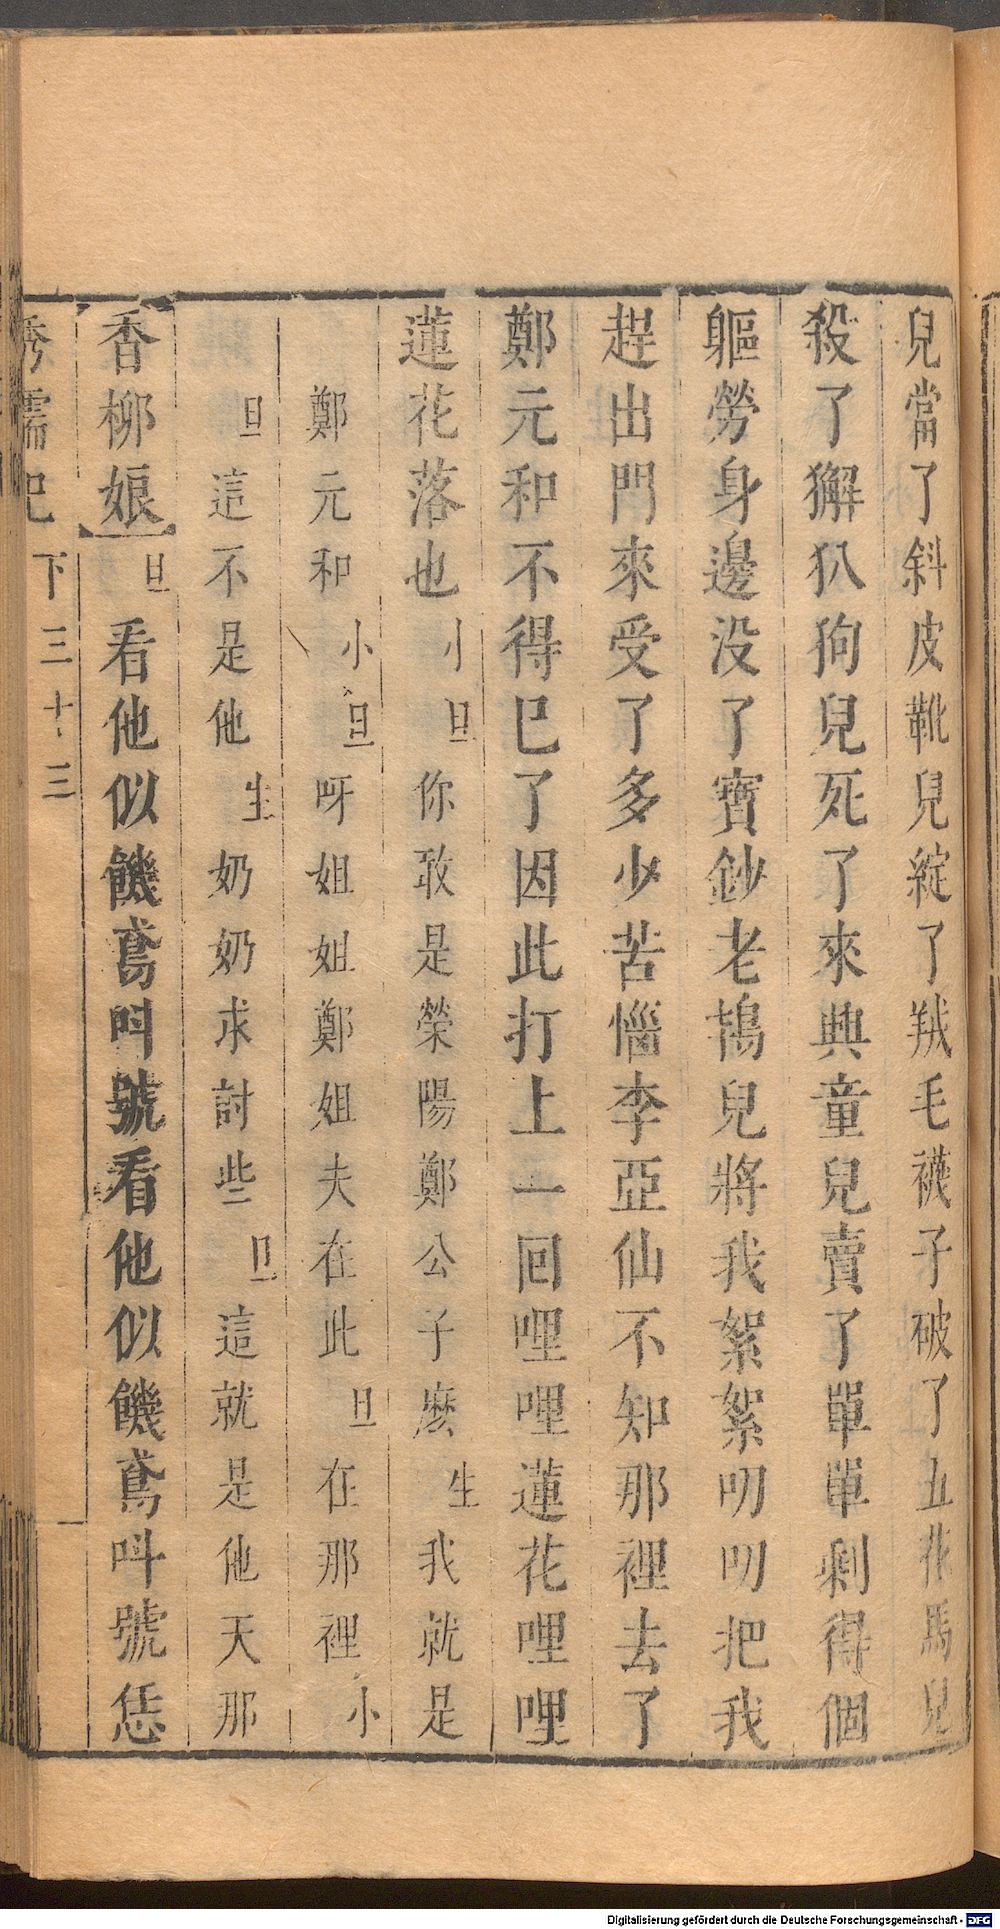 兒當了斜皮靴兒綻了羢毛襪子破了五花馬兒
殺了獬犰狗兒死了來興童兒賣了單單剩得個
軀勞身邊没了寶鈔老鴇兒將我絮絮叨叨把我
趕出門來受了多少苦惱李亞仙不知那裡去了
鄭元和不得已了因此打上一回哩哩蓮花哩哩
蓮花落也小旦你敢是榮陽鄭公子麽生我就是
鄭元和小旦呀姐姐鄭姐夫在此旦在那裡小
旦這不是他生奶奶求討些旦這就是他天那
香柳娘旦看他似饑鳶呌號看他似饑鳶呌號恁
秀襦记 下 三十三
Digitalisierung gefördert durch die Deutsche Forschungsgemeinschaft - DFG